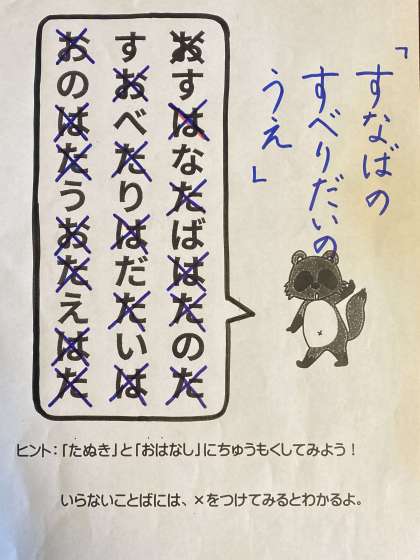 「すなばの
すべりだいの
うえ」
おすはなたばはたのた
すおべたりはだたいは
おのはたうおたえはた
ヒント:「たぬき」と「おはなし」にちゅうもくしてみよう!
いらないことばには、×をつけてみるとわかるよ。